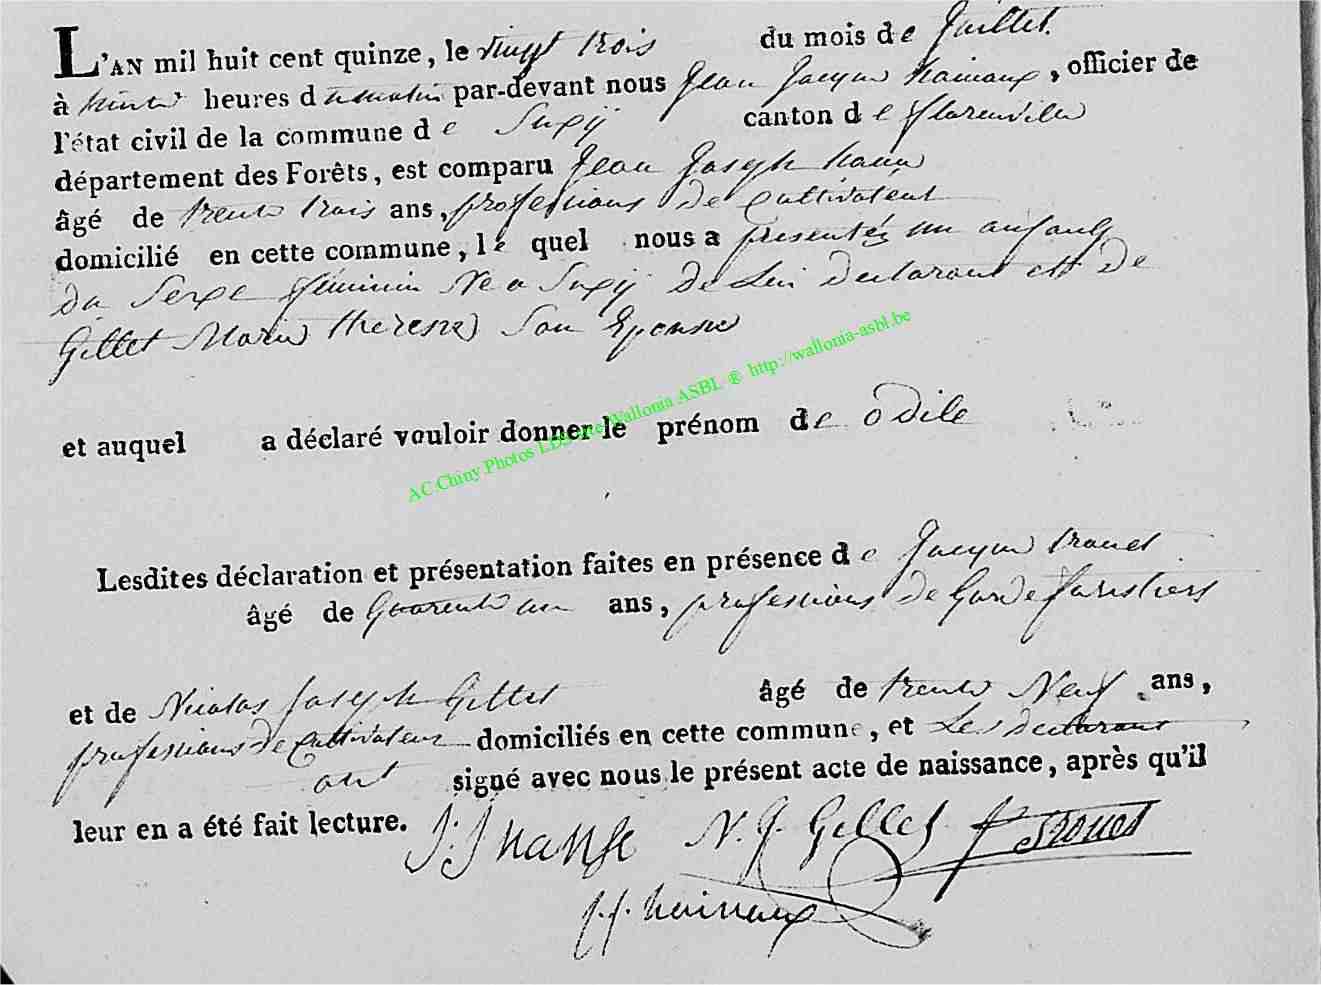 L'AN mil huit cent quinze, le vingt trois du mois de Juillet.
à heures du matin par-devant nous Jean Jacque hainaux, officier de
l'état civil de la commune de Suxÿ canton de florenville
département des Forêts, est comparu Jean Joseph
âgé de trente trois ans, professions de Cultivateur
domicilié en cette commune, le quel nous a presentéz un anfant
du Sexe féminin Né a Suxÿ de Lui declarant et de
Gillet Marie therese Son Epouse
et auquel a déclaré vouloir donner le prénom de odile
AC Chiny Photos LDS site Wallonia ASBL ® http://wallonia-asbl.be
Lesdites déclaration et présentation faites en présence de Jacque trouet
âgé de Quarente un ans, professions de Garde foristiers
et de Nicolas Joseph Gillet âgé de trente Neuf ans,
professions de Cultivateur domiciliés en cette commune, et Les declarant
ont signé avec nous le présent acte de naissance, après qu'il
leur en a été fait lecture. N. J. Gillet J Trouet
J. J. hainaux